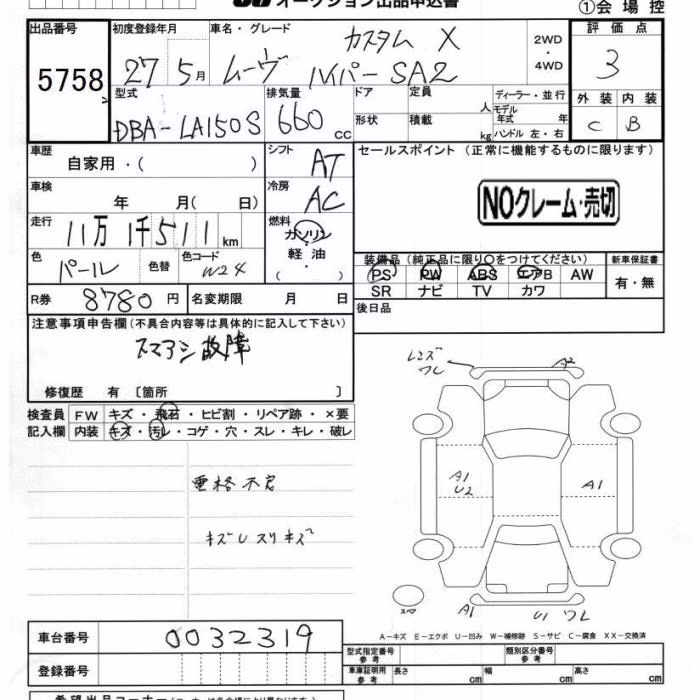 オークション出品申込書
①会場控
出品番号
5758
初度登録年月
27年5月
車名・グレード
ムーヴ カスタム X
ハイパーSA2
2WD
・
4WD
評価点
3
型式
DBA-LA150S
排気量
660 cc
ドア
形状
定員 人
積載 kg
ディーラー・並行
モデル年式 年
ハンドル 左・右
外装 内装
C B
車歴
自家用・( )
シフト
AT
車検
年 月( 日)
冷房
AC
走行
11万1千511km
燃料
ガソリン
・
軽油
( ・ )
色
パール
色替
色コード
W24
R券 8780円
名変期限 月 日
セールスポイント (正常に機能するものに限ります)
NOクレーム・売切
装備品(純正品に限り○をつけてください)
PS PW ABS エアB AW
SR ナビ TV カワ
新車保証書
有・無
後日品
注意事項申告欄(不具合内容等は具体的に記入して下さい)
スマアシ故障
修復歴 有 〔箇所 〕
検査員 FW キズ・飛石・ヒビ割・リペア跡・×要
記入欄 内装 キズ・汚レ・コゲ・穴・スレ・キレ・破レ
キズU スリキズ
レンズ
ワレ
A2
A1
U2
A1
スペア
A1
U1 ワレ
A－キズ E－エクボ U－凹み W－補修跡 S－サビ C－腐食 XX－交換済
車台番号 0032319
登録番号
型式指定番号
参考
類別区分番号
参考
車庫証明用
参考
長さ cm
幅 cm
高さ cm